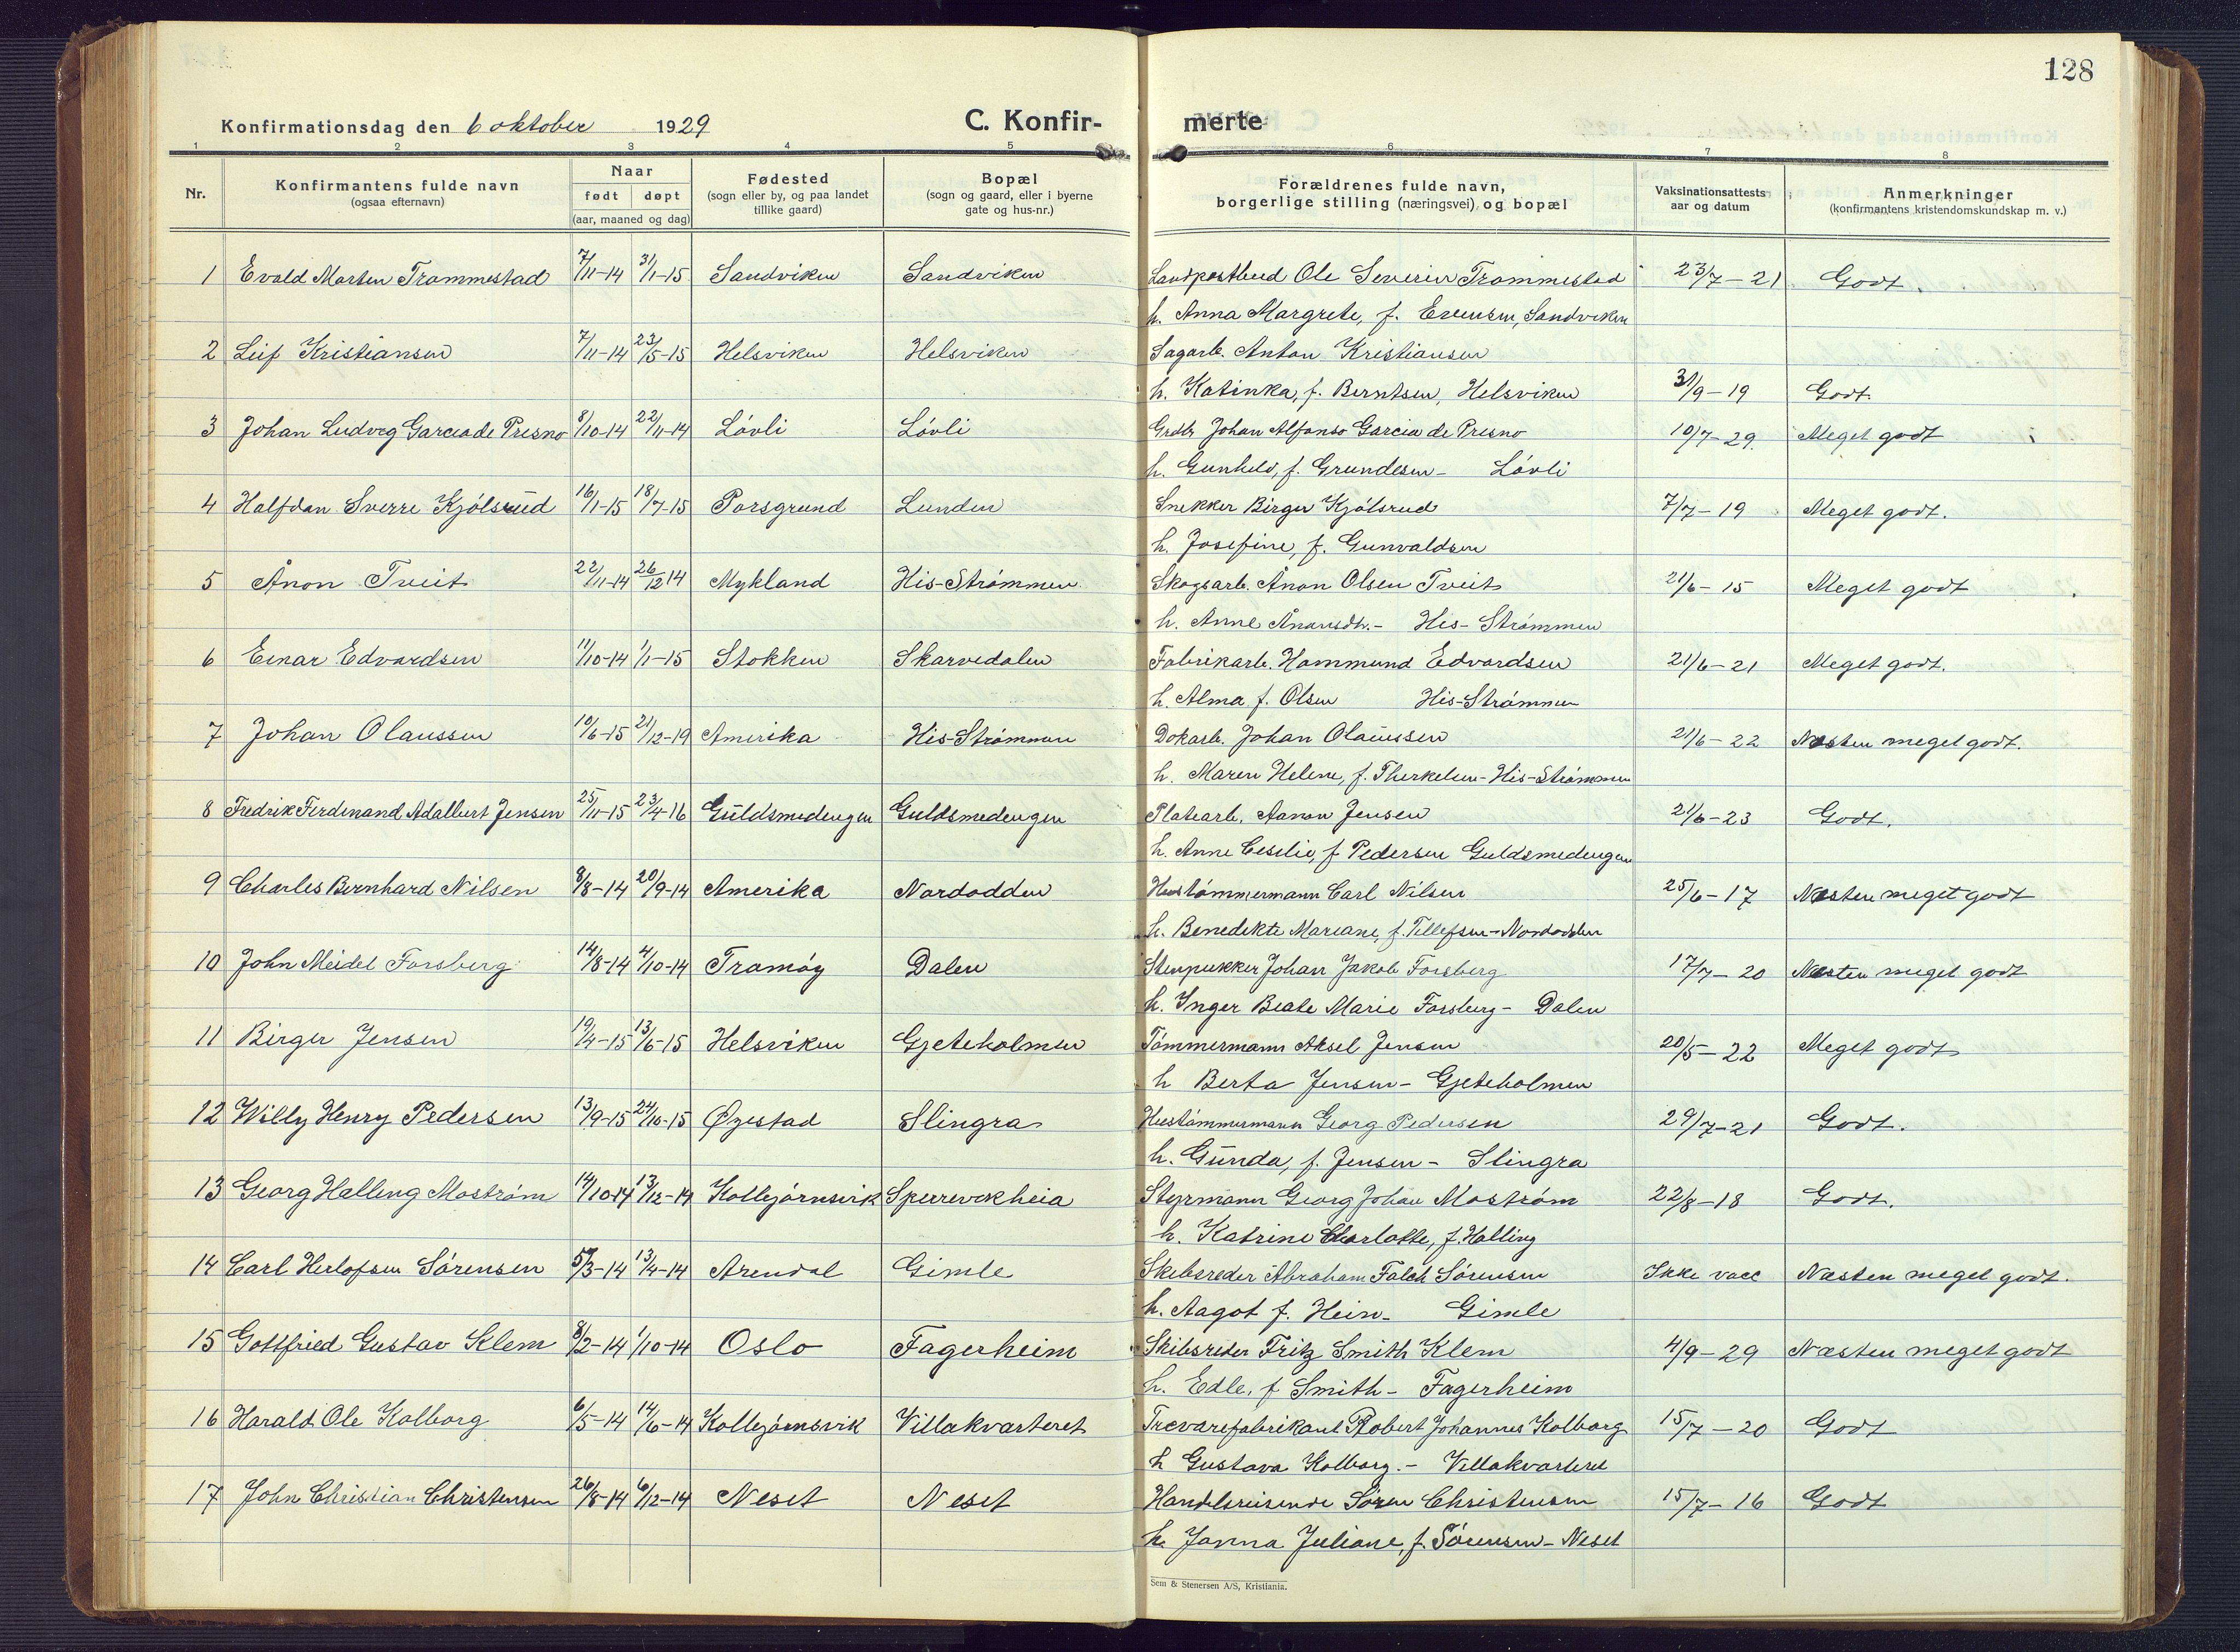 128
Konfirmationsdag den 6 oktober 1929 C. Konfir- merte
1 2 3 4 5 6 7 8
Nr. Konfirmantens fulde navn (ogsaa efternavn) Naar født døpt (aar, maaned og dag) Fødested (sogn eller by, og paa landet tillike gaard) Bopæl (sogn og gaard, eller i byerne gate og hus-nr.) Forældrenes fulde navn, borgerlige stilling (næringsvei) og bopæl Vaksinationsattests aar og datum Anmerkninger (konfirmantens kristendomskundskap m. v.)
1 Evald Marten Trommestad 7/11-14 31/1-15 Sandviken Sandviken Landpostbud Ole Severin Trommestad 23/7-21 Godt.
h. Anna Margrete, f. Evensen, Sandviken
2 Leif Kristiansen 7/11-14 23/5-15 Helsviken Helsviken Sagarb. Anton Kristiansen
h. Katinka, f. Berntsen, Helsviken 31/9-19 Godt.
3 Johan Ludvig Garcia de Presno 8/10-14 22/11-14 Lóvli Lóvli Grdbr Johan Alfonso Garcia de Presno 10/7-29. Meget godt
h. Gunhild, f. Grundesen- Lóvli
4 Halfdan Sverre Kjólsrud 16/1-15 18/7-15 Porsgrund Lunden Snekker Birger Kjólsrud 7/7-19 Meget godt.
h. Josefine, f. Gunvaldsen
5 Ånon Tveit 22/11-14 26/12 14 Mykland His-Strómmen Skogsarb. Ånon Olsen Tveit 21/6-15 Meget godt
h. Anne Ånonsdtr.- His-Strómmen
6 Einar Edvardsen 11/10-14 1/1-15 Stokken Skarvedalen Fabrikarb. Hammund Edvardsen 21/6-21 Meget godt.
h. Alma f. Olsen His-Strómmen
7 Johan Olaussen 10/6-15 21/12-19 Amerika His-Strómmen Dokarb. Johan Olaussen 21/6-22 Næsten meget godt.
h. Maren Helene, f. Therkelsen-His-Strómmen
8 Fredrik Ferdinand Adalbert Jensen 25/11-15 23/4-16 Guldsmedengen Guldsmedengen Platearb. Aanon Jensen 21/6-23 Godt.
h. Anne Cesilie, f Pedersen Guldsmedengen
9 Charles Bernhard Nilsen 8/8-14 20/9-14 Amerika Nordodden Hustómmermann Carl Nilsen 25/6-17 Næsten meget godt
h. Benedikte Mariane, f. Tellefsen-Nordodden
10 John Meidel Forsberg 14/8-14 4/10-14 Tromóy Dalen Stenpukker Johan Jakob Forsberg 17/7-20 Næsten meget godt
h. Inger Beate Marie Forsberg- Dalen
11 Birger Jensen 19/4-15 13/6-15 Helsviken Gjeteholmen Tómmermann Aksel Jensen 20/5-22 Meget godt
h Berta Jensen- Gjeteholmen
12 Willy Henry Pedersen 13/9-15 24/10-15 Øyestad Slingra Hustómmermann Georg Pedersen 29/7-21 Godt.
h. Gunda, f. Jensen- Slingra
13 Georg Halling Mostróm 14/10-14 13/12-14 Kolbjórnsvik Spurevekheia Styrmann Georg Johan Mostróm 22/8-18 Godt.
h. Katrine Charlotte, f. Halling
14 Carl Herlofsen Sórensen 5/3-14 13/4-14 Arendal Gimle Skibsreder Abraham Falch Sórensen Ikke vacc Næsten meget godt.
h. Aagot f. Hein- Gimle
15 Gottfried Gustav Klem 8/2-14 1/10-14 Oslo Fagerheim Skibsreder Fritz Smith Klem 4/9-29 Næsten meget godt
h. Edle, f Smith- Fagerheim
16 Harald Ole Kolborg 6/5-14 14/6-14 Kolbjórnsvik Villakvarteret Trevarefabrikant Robert Johannes Kolborg 15/7-20 Godt
h Gustava Kolborg.- Villakvarteret
17 John Christian Christensen 26/8-14 6/12-14 Neset Neset Handelsreisende Sóren Christensen 15/7-16 Godt
h. Janna Juliane, f. Sórensen-Neset
Sem & Stenersen A/S, Kristiania.